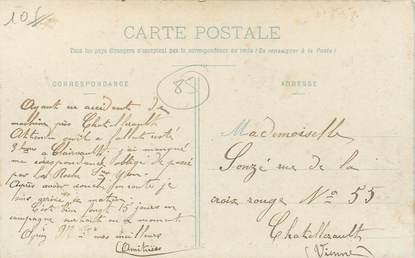 105
CARTE POSTALE
Tous les pays étrangers n'acceptent pas la correspondance au recto (Se renseigner à la Poste)
CORRESPONDANCE
ADRESSE
85
Ayant eu accident de
machine près Chatellerault
Attendu qu'il a fallut resté
à Clairvault j'ai manqué
ma correspondance obligé de passé
par La Roche Yon
Après avoir en route je
suis arrivé ce matin.
C'est bien long 15 jours en
campagne surtout en ce moment
meilleurs
Mademoiselle
Sonzé rue de la
croix rouge No 55
Chatellerault
(Vienne)